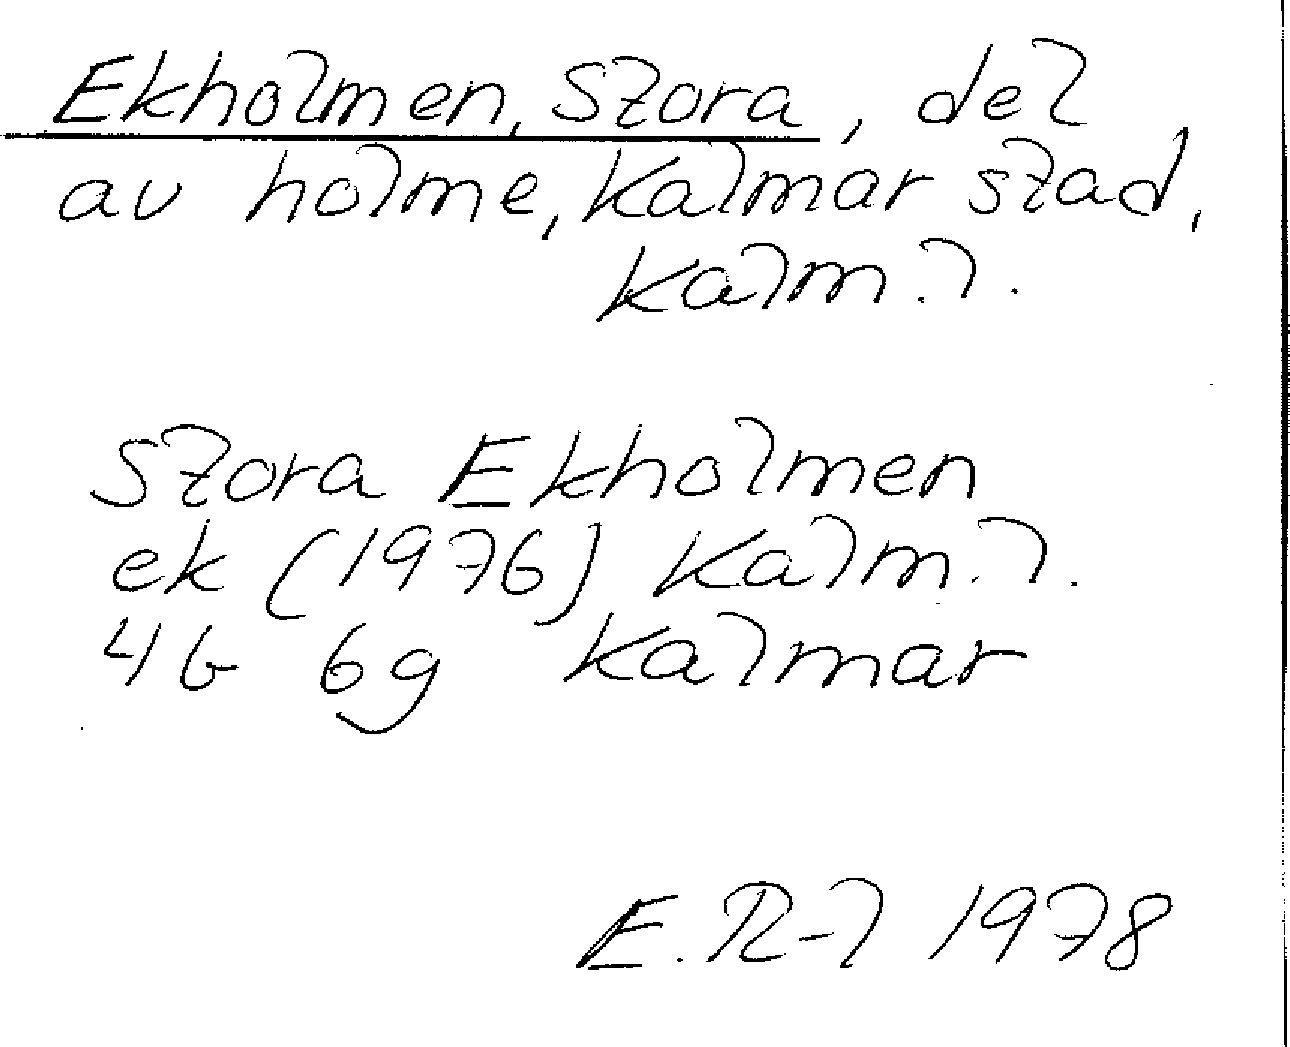 Ekholmen, Stora, del
av holme, Kalmar stad,
Kalm. l.
Stora Ekholmen
ek (1976) Kalm. l.
4G 6g Kalmar
E. R-l 1978